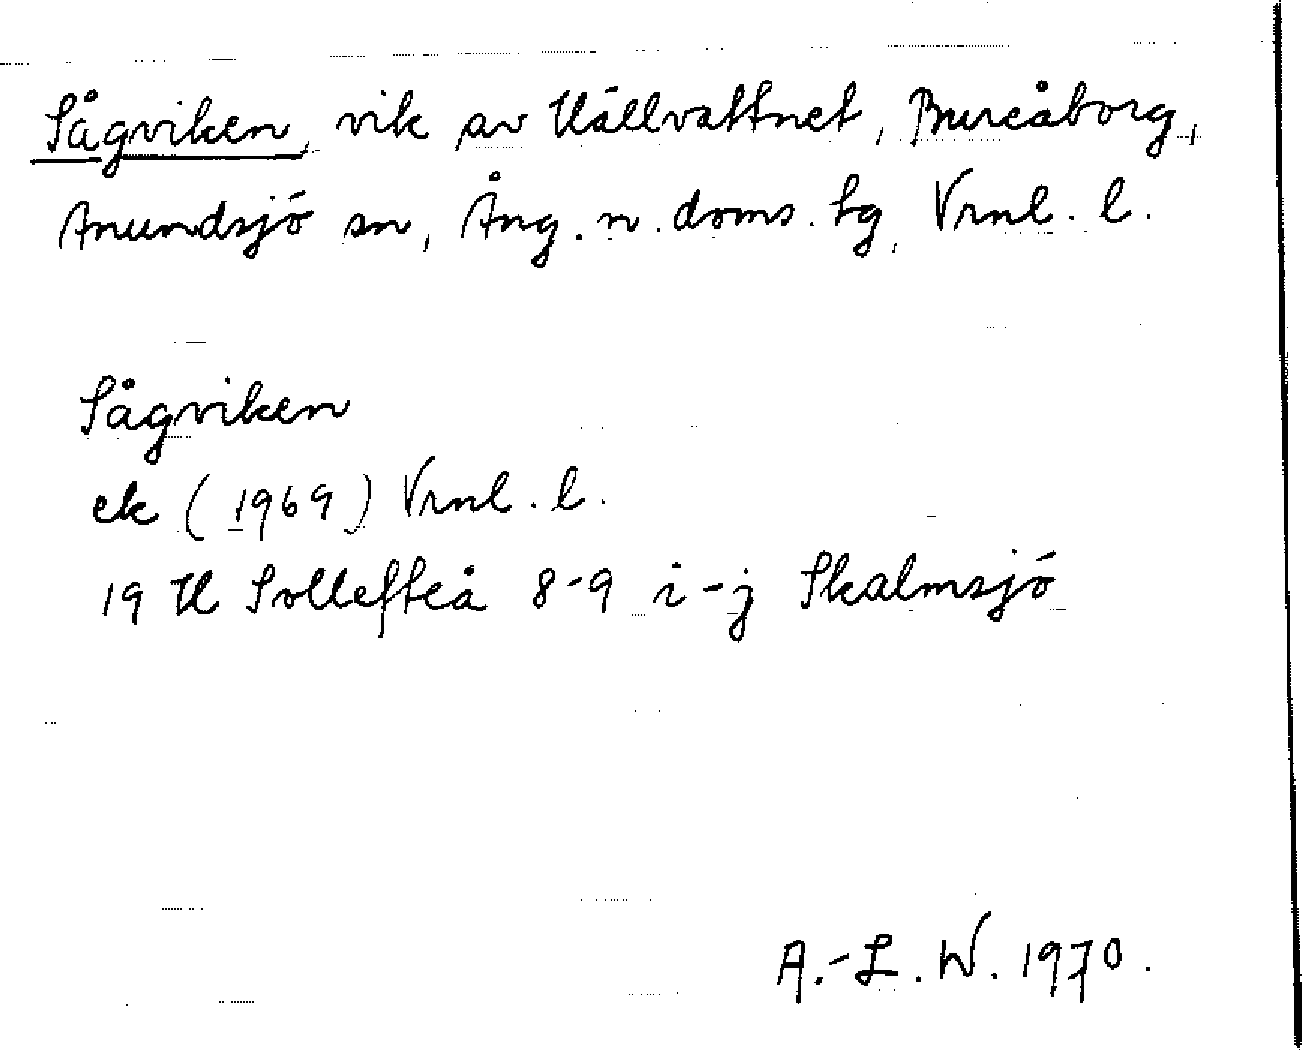 Sågviken, vik av Hällvattnet, Bureåborg,
Anundsjö sn, Ång. n. doms. hg, Vrnl. l.
Sågviken
ek (1969) Vrnl. l.
19 H Sollefteå 8-9 i-j Skalmsjö
A.-L. W. 1970.